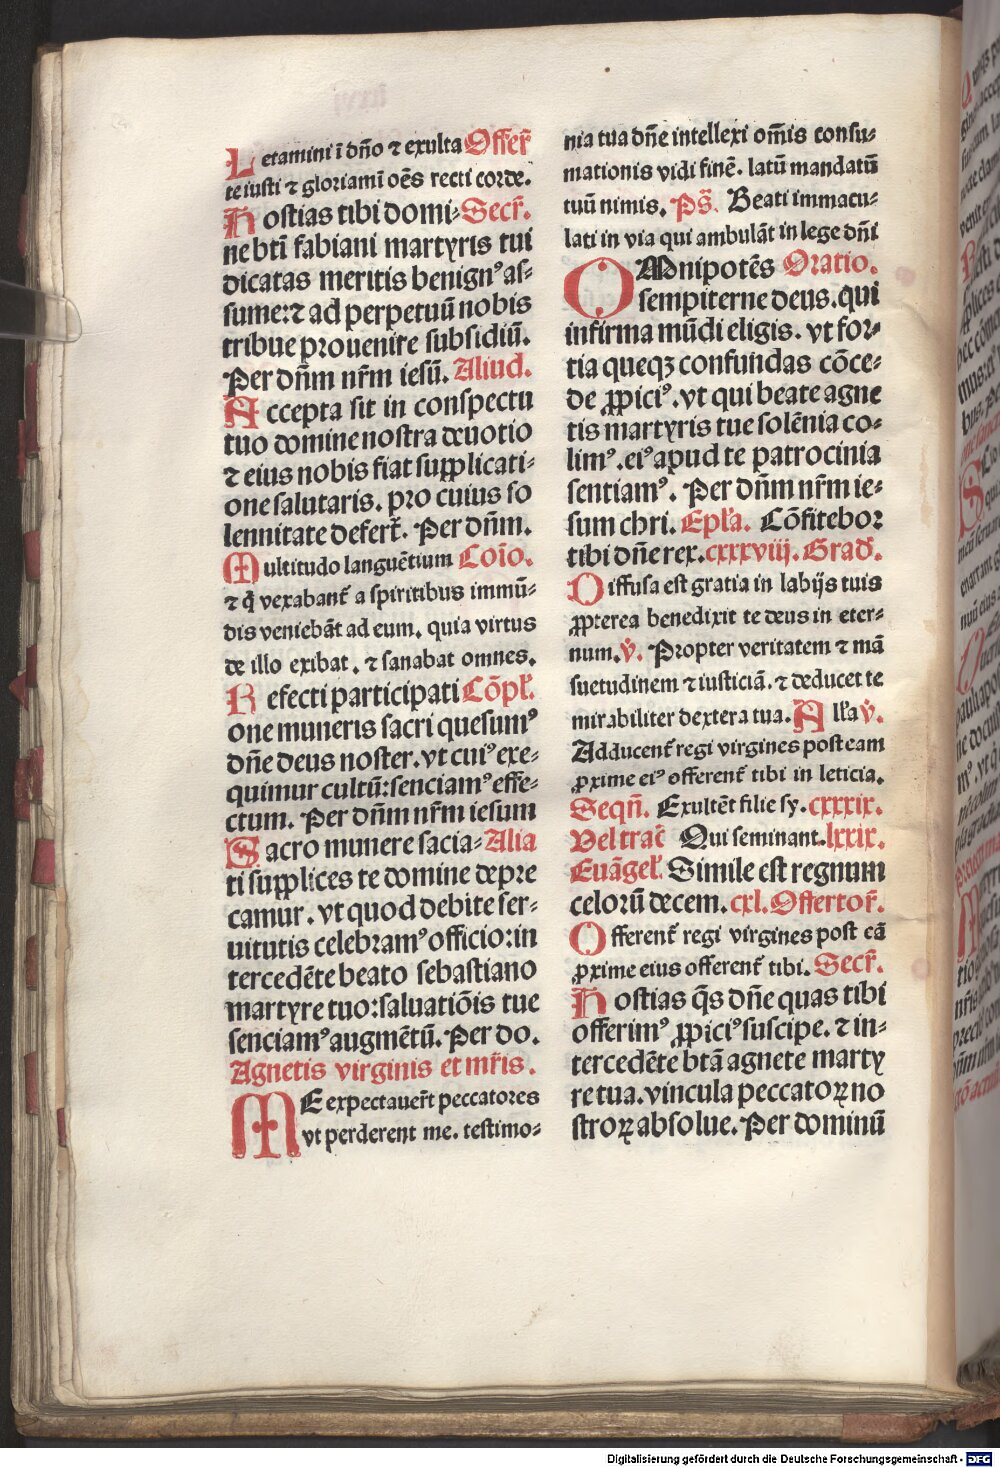 Letamini ī dño ⁊ exulta Offer̃
te iusti ⁊ gloriamī oēs recti corde.
Hostias tibi domi⸗ Secr̃.
ne btī fabiani martyris tui
dicatas meritis benignꝰ as⸗
sume:⁊ ad perpetuū nobis
tribue prouenire subsidiū.
Per dñm nr̃m iesū. Aliud.
Accepta sit in conspectu
tuo domine nostra deuotio
⁊ eius nobis fiat supplicati⸗
one salutaris. pro cuius so
lennitate defert̃. Per dñm.
Multitudo languētium Cōio.
⁊ q̄ vexabant̃ a spiritibus immū⸗
dis veniebāt ad eum. quia virtus
de illo exibat. ⁊ sanabat omnes.
Refecti participati Cōpl̃.
one muneris sacri quesumꝰ
dñe deus noster. vt cuiꝰ exe⸗
quimur cultū:senciamꝰ effe⸗
ctum. Per dñm nr̃m iesum
Sacro munere sacia⸗ Alia
ti supplices te domine depre
camur. vt quod debite ser⸗
uitutis celebramꝰ officio:in
tercedēte beato sebastiano
martyre tuo:saluatiōis tue
senciamꝰ augmētū. Per do.
Agnetis virginis et mr̃is.
ME expectauer̃t peccatores
vt perderent me. testimo⸗
nia tua dñe intellexi om̃is consu⸗
mationis vidi finē. latū mandatū
tuū nimis. Ps̃. Beati immacu⸗
lati in via qui ambulāt in lege dñi
OMnipotēs Oratio.
sempiterne deus. qui
infirma mūdi eligis. vt for⸗
tia queqꝫ confundas cōce⸗
de ꝓpiciꝰ. vt qui beate agne
tis martyris tue solēnia co⸗
limꝰ. eiꝰ apud te patrocinia
sentiamꝰ. Per dñm nr̃m ie⸗
sum chri. Epl̃a. Cōfitebor
tibi dñe rex. cxxxviij. Grad̃.
Diffusa est gratia in labijs tuis
ꝓpterea benedixit te deus in eter⸗
num. ℣. Propter veritatem ⁊ mā
suetudinem ⁊ iusticiā. ⁊ deducet te
mirabiliter dextera tua. All̃a ℣.
Adducent̃ regi virgines post eam
ꝓxime eiꝰ offerent̃ tibi in leticia.
Seqñ. Exultēt filie sy. cxxxix.
Vel trac̃ Qui seminant. lxxix.
Euāgel̃. Simile est regnum
celorū decem. cxl. Offertor̃.
Offerent̃ regi virgines post eā
ꝓxime eius offerent̃ tibi. Secr̃.
Hostias q̄s dñe quas tibi
offerimꝰ ꝓpiciꝰ suscipe. ⁊ in⸗
tercedēte btā agnete marty
re tua. vincula peccatoꝝ no
stroꝝ absolue. Per dominū
Digitalisierung gefördert durch die Deutsche Forschungsgemeinschaft - DFG